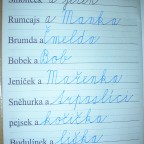 Smolíček a jelen
Rumcajs a Manka
Brumda a Čmelda
Bobek a Bob
Jeníček a Mařenka
Sněhurka a trpaslíci
pejsek a kočička
Budulínek a liška